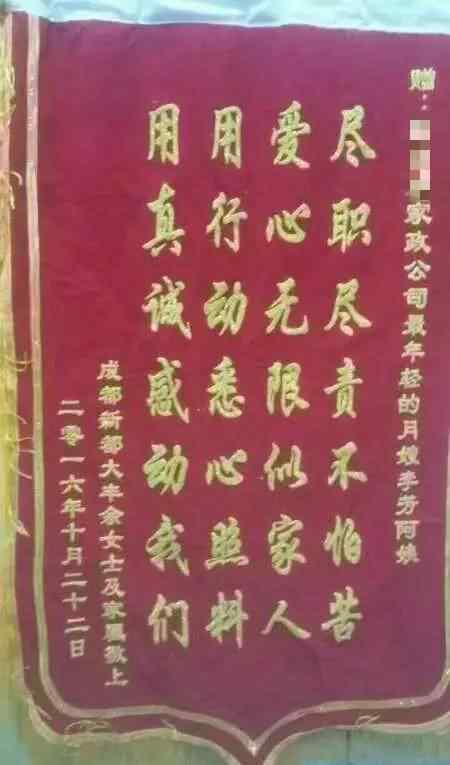 赠：家政公司最年轻的月嫂李芳阿姨
尽职尽责不怕苦
爱心无限似家人
用行动悉心照料
用真诚感动我们
成都新都大丰余女士及家属敬上
二零一六年十月二十二日